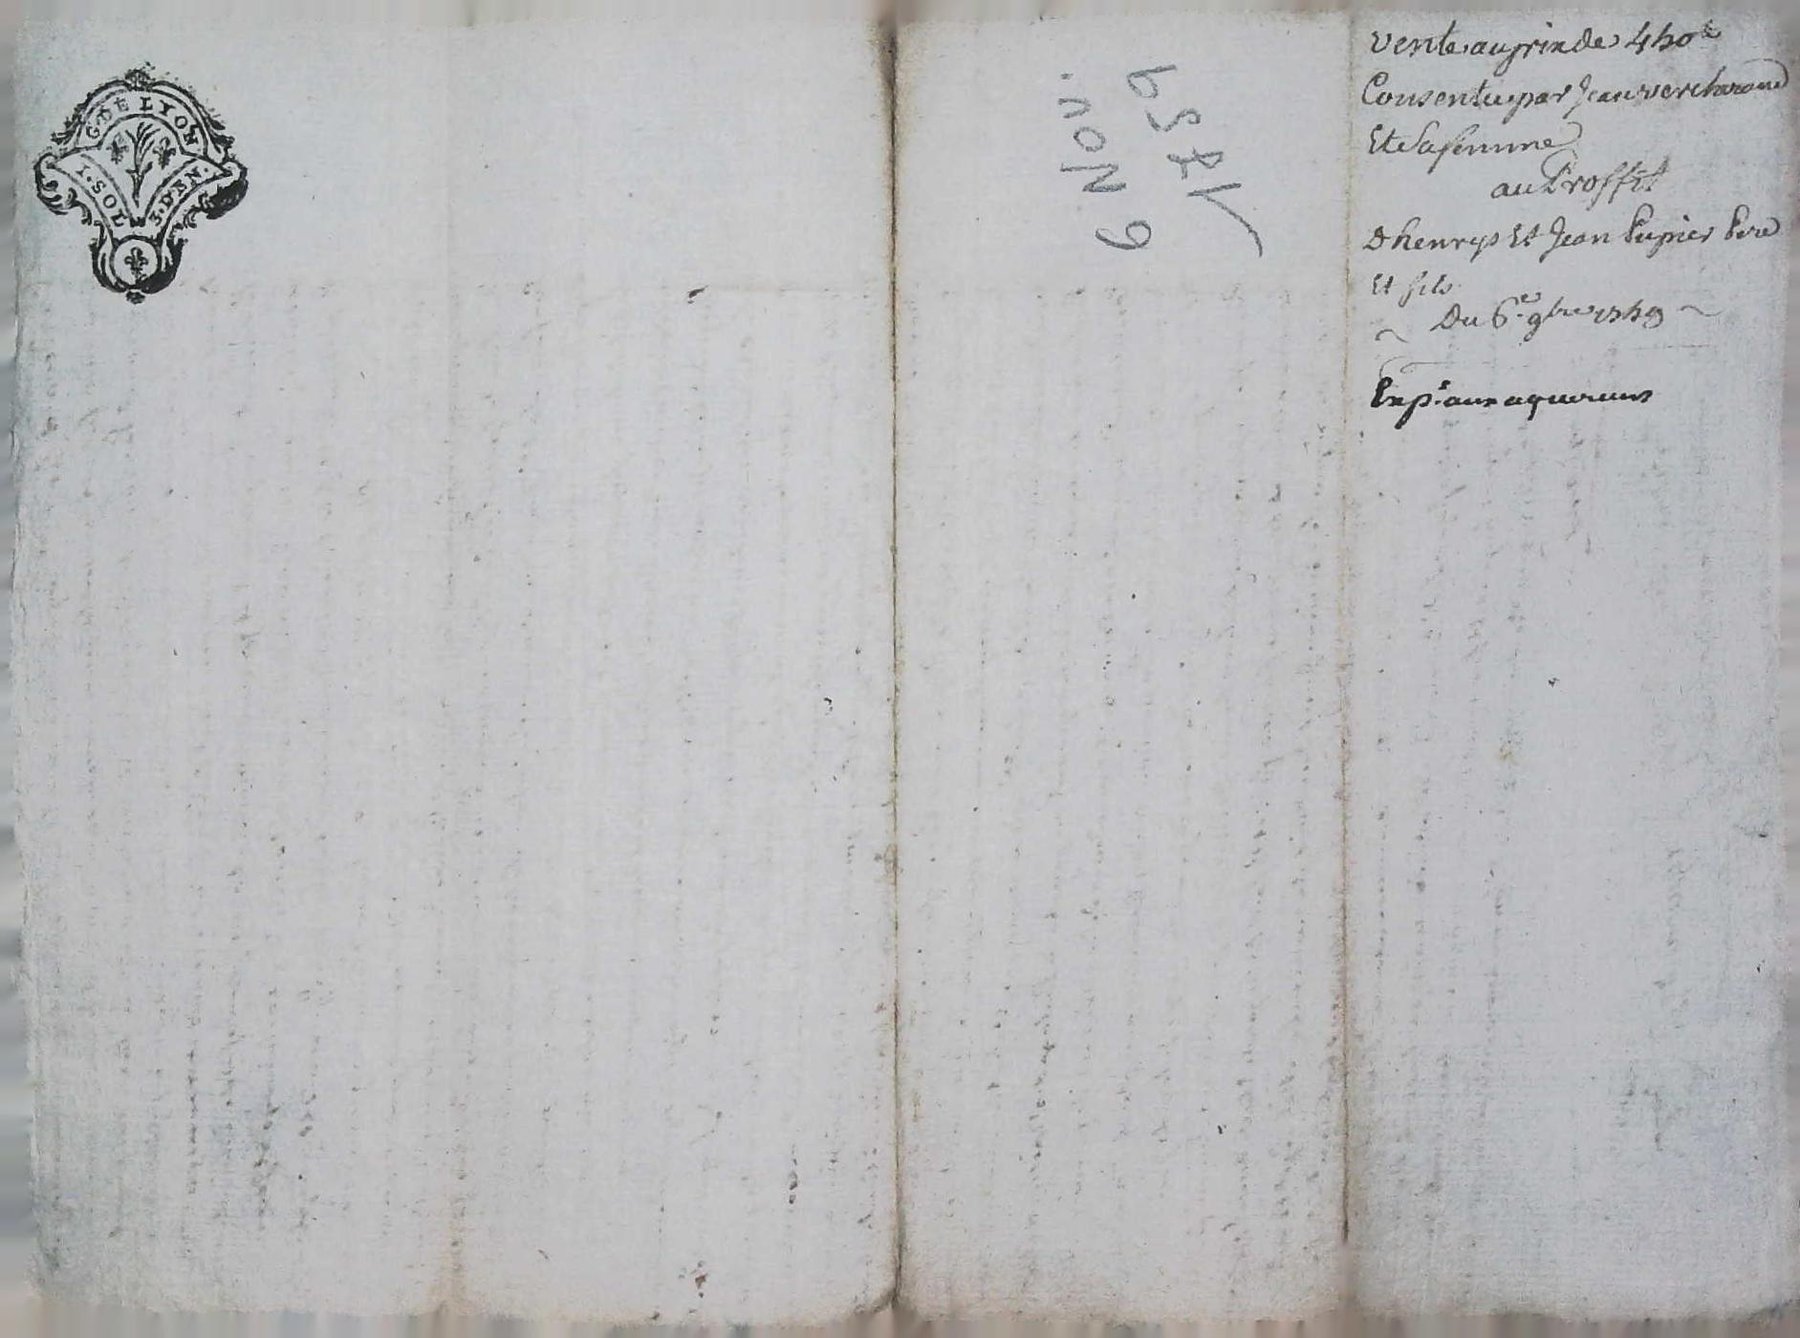 G. DE LYON
I. SOL 3. DEN.
6 Nov.
1759
Vente au prix de 450 £
Consentue par Jean vercharand
Et Sa femme
au Proffit
d henrys Et Jean Pupier Pere
Et fils
Du 6.e 9bre 1759
Exp.é aux aquereurs